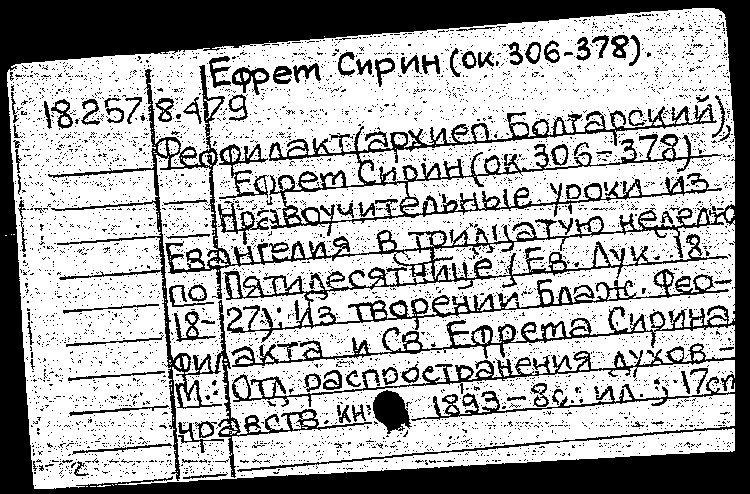 Ефрем Сирин (ок. 306-378).
18.257.8.479
Феофилакт (архиеп. Болгарский),
Ефрем Сирин (ок. 306-378).
Нравоучительные уроки из
Евангелия в тридцатую неделю
по Пятидесятнице (Ев. Лук. 18.
18-27): Из творений Блаж. Фео-
филакта и Св. Ефрема Сирина.
М.: Отд. распространения духов.-
нравств. кн. 1893.- 8с.: ил. ; 17см